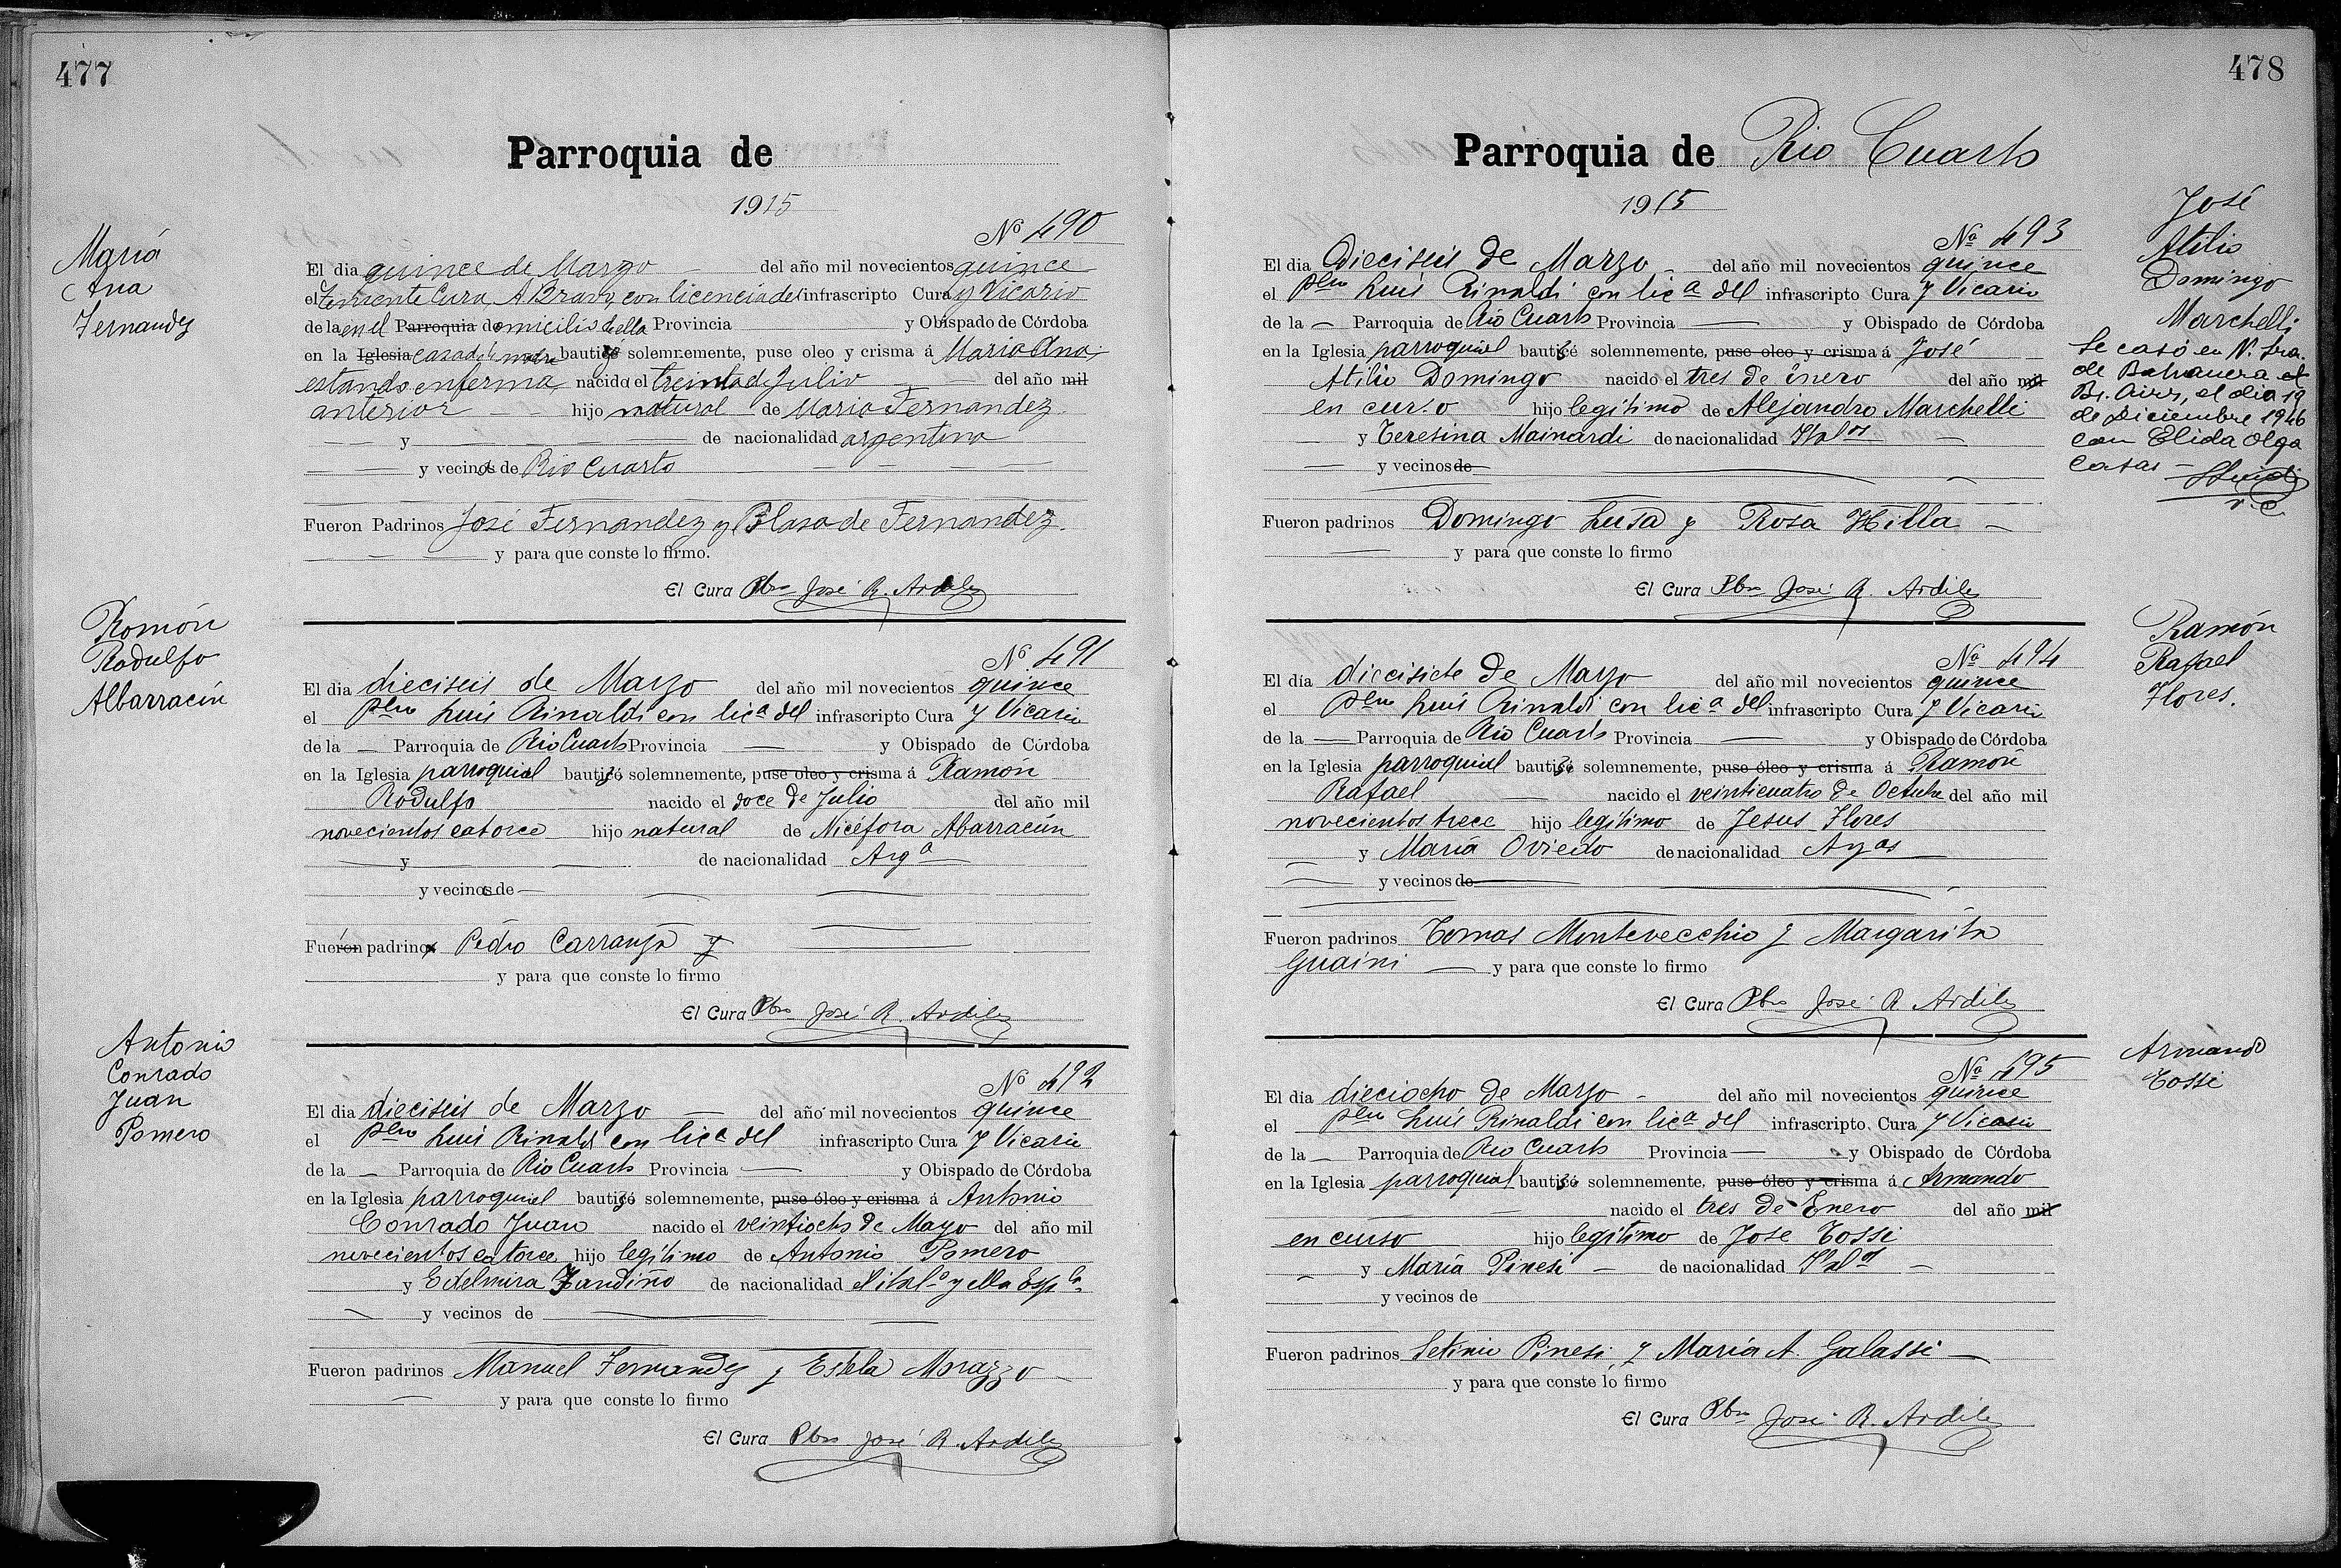 477
Parroquia de
1915
María
Ana
Fernandez
Nº 490
El dia quince de Marzo del año mil novecientos quince
el Teniente Cura A Bravo, con licencia del infrascripto Cura y Vicario
de la en el Parroquia domicilio de ella Provincia y Obispado de Córdoba
en la Iglesia casa de la madre bautizó solemnemente, puse oleo y crisma á Maria Ana,
estando enferma nacida el treinta de Julio del año mil
anterior hijo natural de Maria Fernandez
y de nacionalidad argentina
y vecinos de Rio Cuarto
Fueron Padrinos José Fernandez y Blasa de Fernandez.
y para que conste lo firmo.
El Cura Pbro José R. Ardiles
Ramón
Rodulfo
Albarracín
Nº 491
El dia dieciseis de Marzo del año mil novecientos quince
el Pbro Luis Rinaldi con licª del infrascripto Cura y Vicario
de la Parroquia de Rio Cuarto Provincia y Obispado de Córdoba
en la Iglesia parroquial bautizó solemnemente, puse oleo y crisma á Ramón
Rodulfo nacido el doce de Julio del año mil
novecientos catorce hijo natural de Nicéfora Abarracín
y de nacionalidad Argª
y vecinos de
Fueron padrinos Pedro Carranza y
y para que conste lo firmo
El Cura Pbro José R. Ardiles
Antonio
Conrado
Juan
Pomero
Nº 492
El dia dieciseis de Marzo del año mil novecientos quince
el Pbro Luis Rinaldi con licª del infrascripto Cura y Vicario
de la Parroquia de Rio Cuarto Provincia y Obispado de Córdoba
en la Iglesia parroquial bautizó solemnemente, puse óleo y crisma á Antonio
Conrado Juan nacido el veintiocho de Mayo del año mil
novecientos catorce hijo legítimo de Antonio Pomero
y Edelmira Jandiño de nacionalidad el italº y ella Espª
y vecinos de
Fueron padrinos Manuel Fernandez y Estela Morazzo
y para que conste lo firmo
El Cura Pbro José R. Ardiles
478
Parroquia de Rio Cuarto
1915
José
Atilio
Domingo
Marchelli
Se casó en N. Sra.
de Balvanera
Bs. Aires, el dia 19
de Diciembre 1946
con Elida Olga
Casas
v.c.
Nº 493
El dia Dieciseis de Marzo del año mil novecientos quince
el Pbro Luis Rinaldi con licª del infrascripto Cura y Vicario
de la Parroquia de Rio Cuarto Provincia y Obispado de Córdoba
en la Iglesia parroquial bautizó solemnemente, puse oleo y crisma á José
Atilio Domingo nacido el tres de Enero del año mil
en curso hijo legítimo de Alejandro Marchelli
y Teresina Mainardi de nacionalidad Italºs
y vecinos de
Fueron padrinos Domingo Lusa y Rosa Hilla
y para que conste lo firmo
El Cura Pbro José R. Ardiles
Ramón
Rafael
Flores.
Nº 494
El día diecisiete de Marzo del año mil novecientos quince
el Pbro Luis Rinaldi con licª del infrascripto Cura y Vicario
de la Parroquia de Rio Cuarto Provincia y Obispado de Córdoba
en la Iglesia parroquial bautizó solemnemente, puse óleo y crisma á Ramón
Rafael nacido el veinticuatro de Octubre del año mil
novecientos trece hijo legítimo de Jesus Flores
y María Oviedo de nacionalidad Argos
y vecinos de
Fueron padrinos Tomas Montevecchio y Margarita
Guaini y para que conste lo firmo
El Cura Pbro José R. Ardiles
Armando
Tossi
Nº 495
El dia dieciocho de Marzo del año mil novecientos quince
el Pbro Luis Rinaldi con licª del infrascripto Cura y Vicario
de la Parroquia de Rio Cuarto Provincia y Obispado de Córdoba
en la Iglesia parroquial bautizó solemnemente, puse óleo y crisma á Armando
nacido el tres de Enero del año mil
en curso hijo legítimo de Jose Tossi
y María Pinesi de nacionalidad Italos
y vecinos de
Fueron padrinos Setimio Pinesi y María A. Galassi
y para que conste lo firmo
El Cura Pbro José R. Ardiles